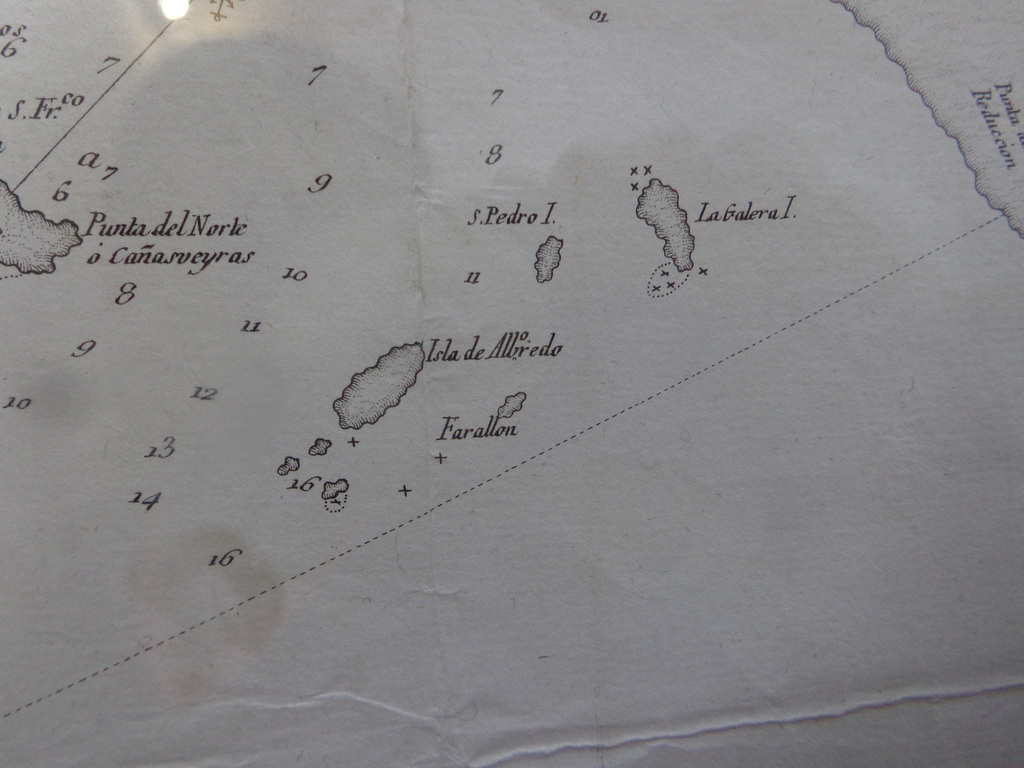 01
6
7
7
7
S. Fr.co
8
a 7
6
9
Punta del Norte
ò Cañasveyras
S. Pedro I.
La Galera I.
Punta
Reduccion
10
11
8
11
9
Isla de Albredo
12
10
Farallon
13
16
14
16